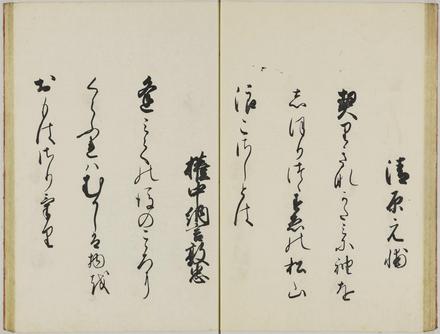 清原元輔
契りきなかたみに袖を
しほりつゝすゑの松山
浪こさしとは
権中納言敦忠
逢みての後のこゝろに
くらふれはむかしは物を
おもはさりけり